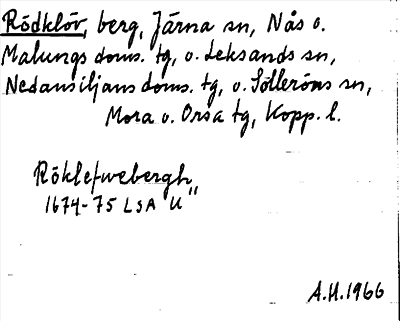 Rödklöv, berg, Järna sn, Nås o.
Malungs doms. tg, o. Leksands sn,
Nedansiljans doms. tg, o. Sölleröns sn,
Mora o. Orsa tg, Kopp. l.
Röklefwebergh
1674-75 LSA U"
A.H. 1966